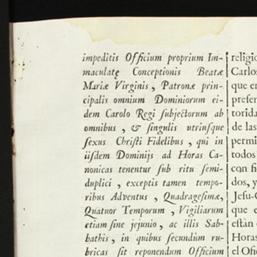 impeditis Officium proprium Im-
maculatę Conceptionis Beatæ
Mariæ Virginis, Patronæ prin-
cipalis omnium Dominiorum ei-
dem Carolo Regi subjectorum ab
omnibus, & singulis utriusque
sexus Christi Fidelibus, qui in
iisdem Dominijs ad Horas Ca-
nonicas tenentur sub ritu semi-
duplici, exceptis tamen tempo-
ribus Adventus, Quadragesimæ,
Quatuor Temporum, Vigiliarum
etiam sine jejunio, ac illis Sab-
bathis, in quibus secundum ru-
bricas sit reponendum Officium
religio
Carlos
que en
presen
torida
de las
permi
todos
con fi
dos, y
Jesu-C
que e
estàn
Horas
el Ofi